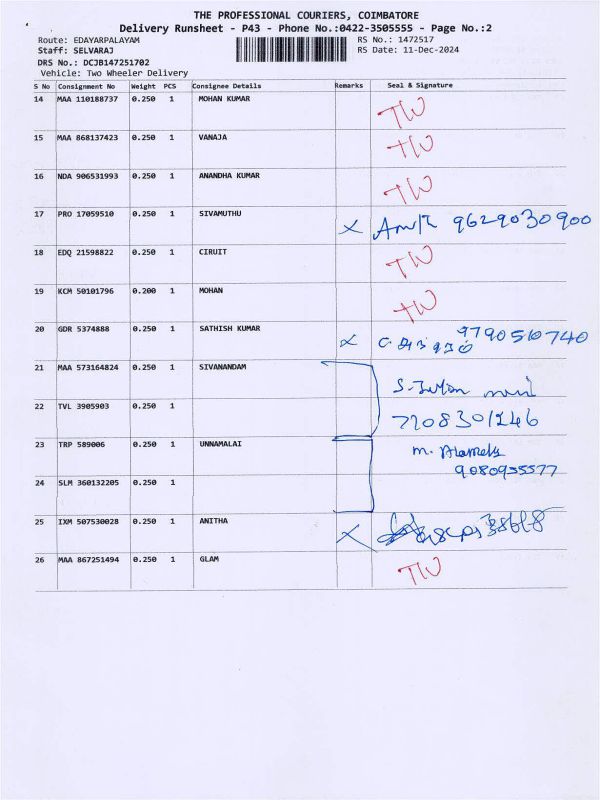 THE PROFESSIONAL COURIERS, COIMBATORE
Delivery Runsheet - P43 - Phone No.:0422-3505555 - Page No.:2
Route: EDAYARPALAYAM RS No.: 1472517
Staff: SELVARAJ RS Date: 11-Dec-2024
DRS No.: DCJB147251702
Vehicle: Two Wheeler Delivery
S No Consignment No Weight PCS Consignee Details Remarks Seal & Signature
14 MAA 110188737 0.250 1 MOHAN KUMAR TW
15 MAA 868137423 0.250 1 VANAJA TW
16 NDA 906531993 0.250 1 ANANDHA KUMAR TW
17 PRO 17059510 0.250 1 SIVAMUTHU X 9629030900
18 EDQ 21598822 0.250 1 CIRUIT TW
19 KCM 50101796 0.200 1 MOHAN TW
20 GDR 5374888 0.250 1 SATHISH KUMAR X 9790510740
21 MAA 573164824 0.250 1 SIVANANDAM
22 TVL 3905903 0.250 1 7708301246
23 TRP 589006 0.250 1 UNNAMALAI M.
24 SLM 360132205 0.250 1 9080955577
25 IXM 507530028 0.250 1 ANITHA X
26 MAA 867251494 0.250 1 GLAM TW